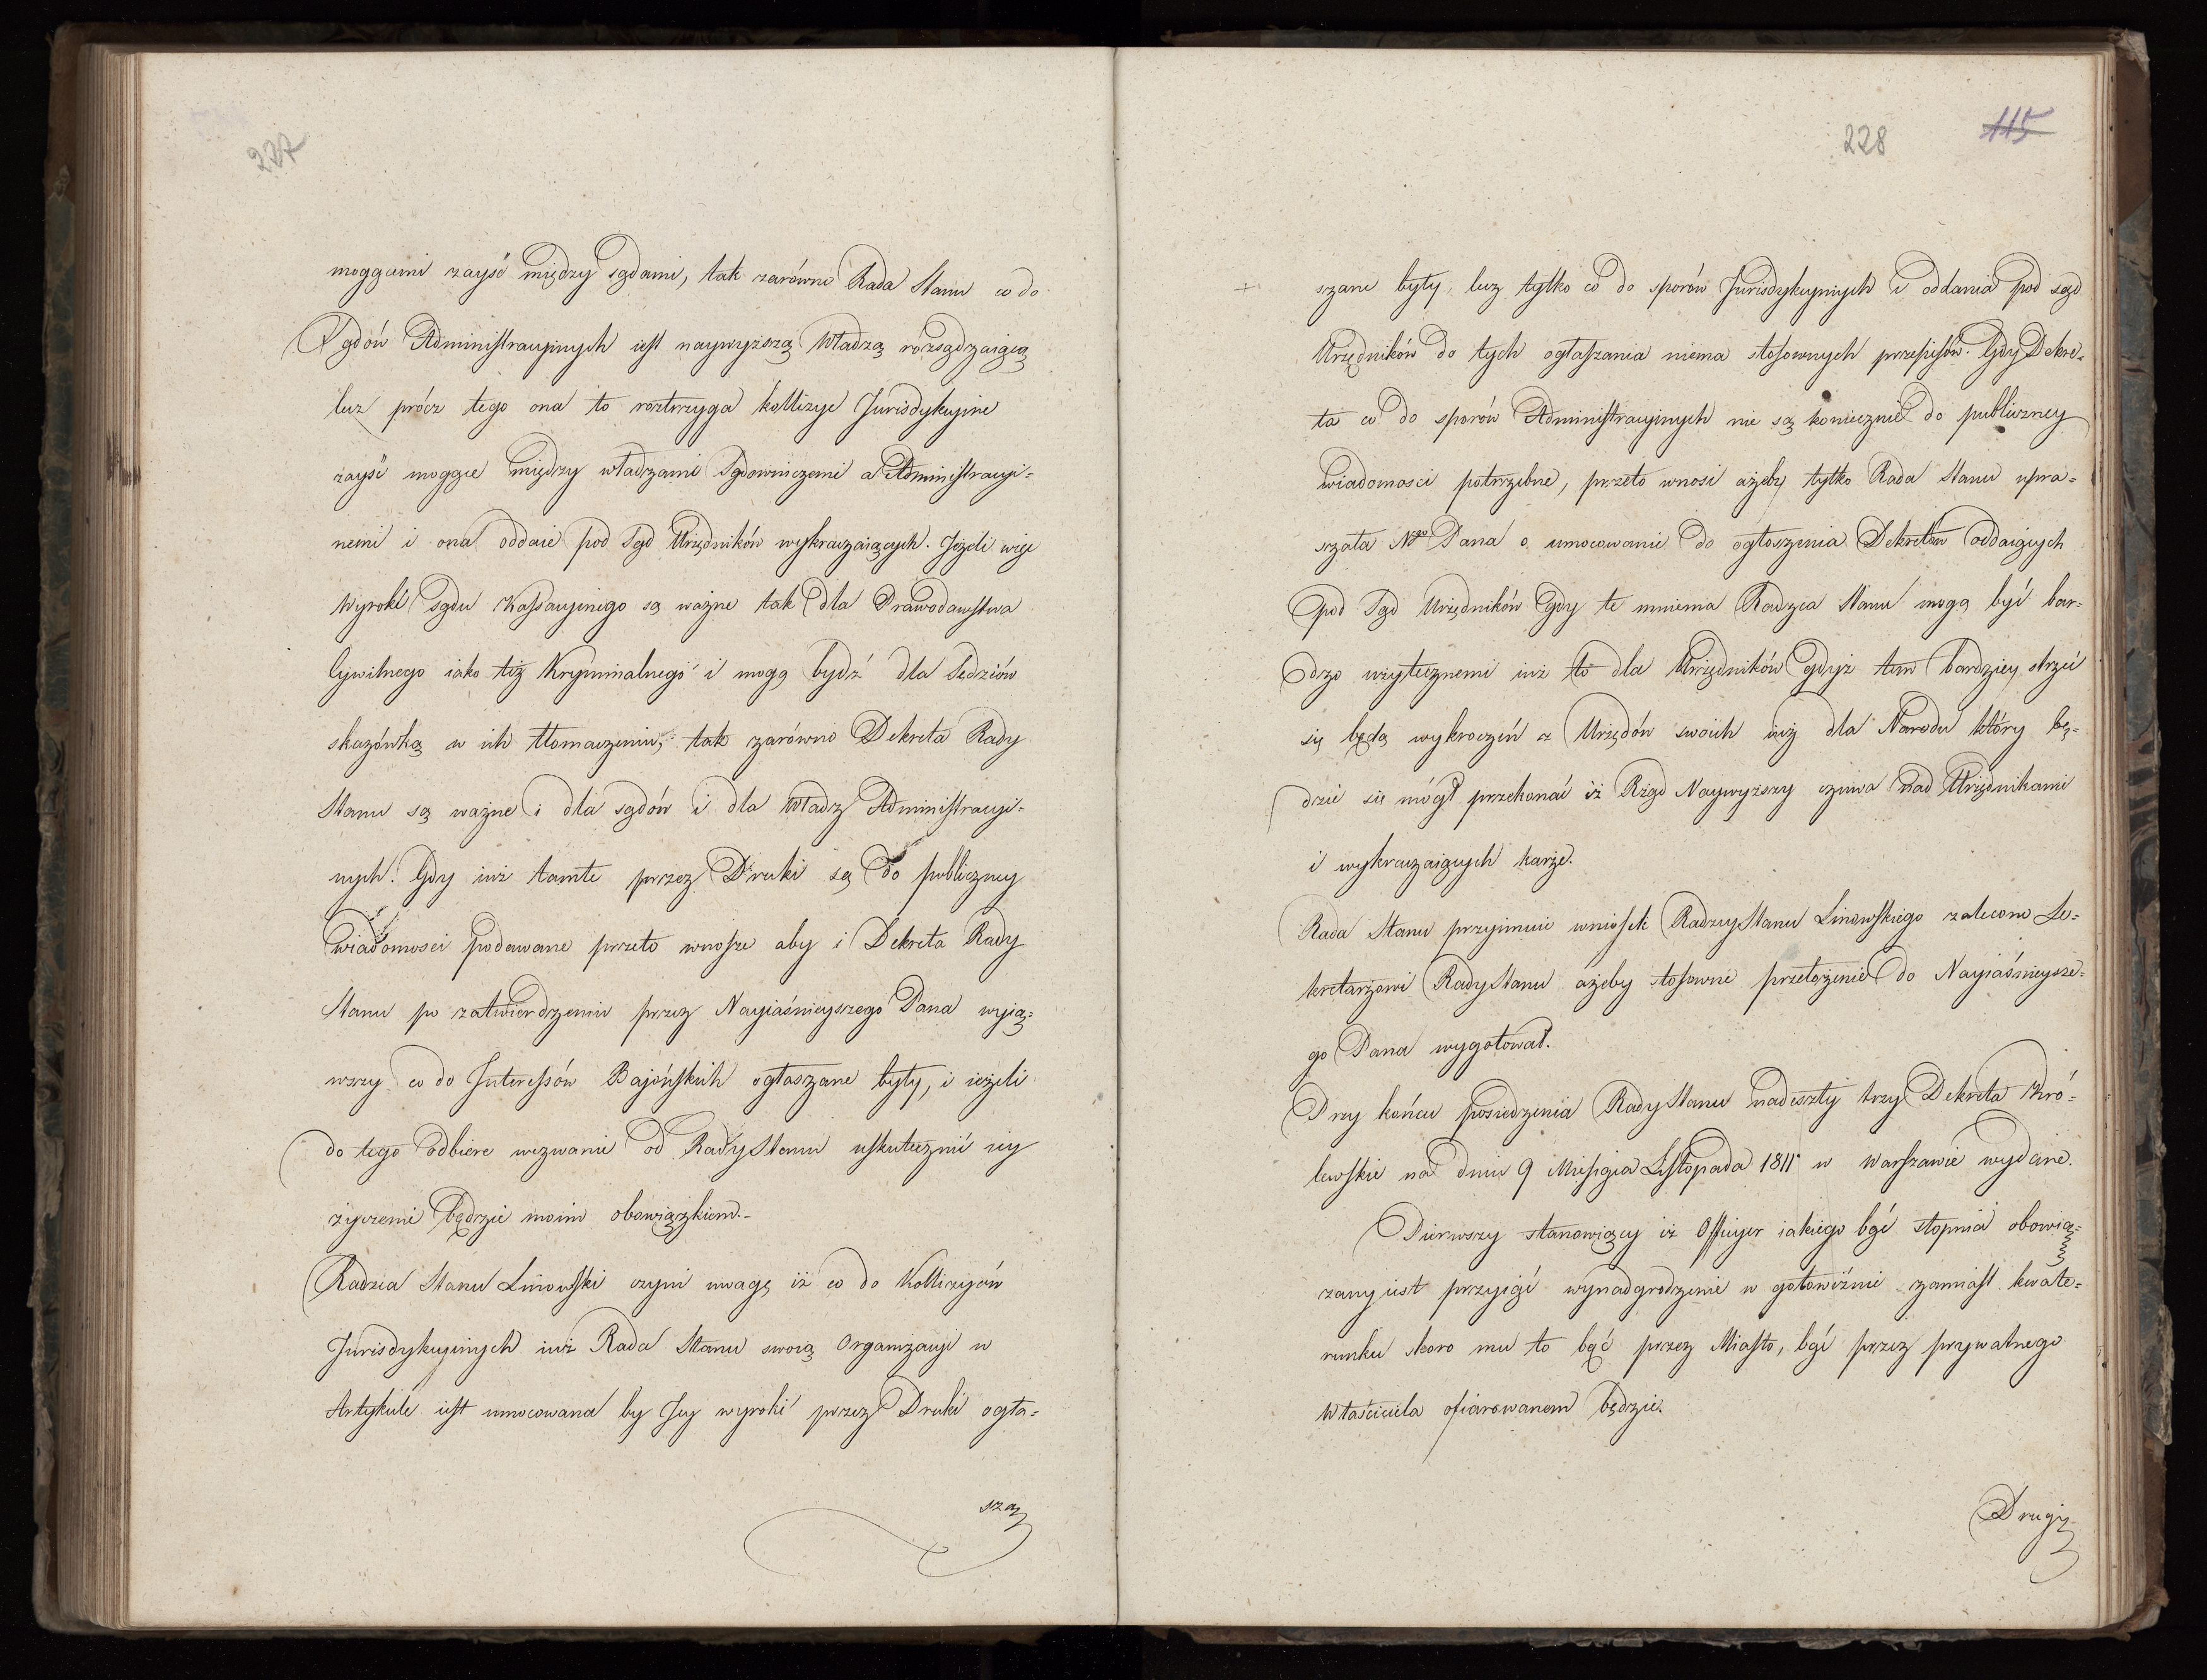 227
mogącemi zayść między sądami, tak zarówno Rada Stanu co do
Sądów Administracyinych iest naywyższą Władzą rozsądzaiącą
lecz prócz tego ona to roztrzyga kollizye Jurisdykcyine
zayść mogące między władzami Sądowniczemi a Administracyi-
nemi i ona oddaie pod Sąd Urzędników wykraczaiących. Jeżeli więc
Wyroki Sądu Kassacyinego są ważne tak dla Prawodawstwa
Cywilnego iako też Kryminalnego i mogą bydź dla Sędziów
skazówką w ich tłomaczeniu, tak zarówno Dekreta Rady
Stanu są ważne i dla sądów i dla Władz Administracyi-
nych. Gdy iuż tamte przez Druki są do publiczney
wiadomości podawane przeto wnoszę aby i Dekreta Rady
Stanu po zatwierdzeniu przez Nayiaśnieyszego Pana wyią-
wszy co do Interessów Bajońskich ogłaszane były, i ieżeli
do tego odbiere wezwanie od Rady Stanu uskutecznić iey
życzenie będzie moim obowiązkiem.-
Radzca Stanu Linowski czyni uwagę iż co do Kollizyów
Jurisdykcyinych iuż Rada Stanu swoią Organizacyi w
Artykule iest umocowana by Jey wyroki przez Druki ogła-
sza
228 115
szane były, lecz tylko co do sporów Jurisdykcyinych i oddania pod sąd
Urzędników do tych ogłaszania niema stosownych przepisów. Gdy Dekre-
ta co do sporów Administracyinych nie są koniecznie do publiczney
wiadomosci potrzebne, przeto wnosi ażeby tylko Rada Stanu upra-
szała Ngo Pana o umocowanie do ogłoszenia Dekretów oddaiących
pod Sąd Urzędników gdy te mniema Radzca Stanu mogą być bar-
dzo użytecznemi iuż to dla Urzędników gdyż tem bardziey strzeć
się będą wykroczeń z Urzędów swoich iuż dla Narodu który bę-
dzie się mógł przekonać iż Rząd Naywyższy czuwa nad Urzędnikami
i wykraczaiących karze.
Rada Stanu przyimuie wniosek Radzcy Stanu Linowskiego zalecono Se-
kretarzowi Rady Stanu ażeby stosowne przełożenie do Nayiaśnieysze-
go Pana wygotował.
Przy końcu posiedzenia Rady Stanu nadeszły trzy Dekreta Kró-
lewskie na dniu 9 Miesiąca Listopada 1811 w Warszawie wydane.
Pierwszy stanowiący iż Officyer iakiego bąć stopnia obowią-
zany iest przyiąć wynadgrodzenie w gotowiźnie zamiast kwate-
runku skoro mu to bąć przez Miasto, bąć przez prywatnego
Właściciela ofiarowanem będzie.
Drugi